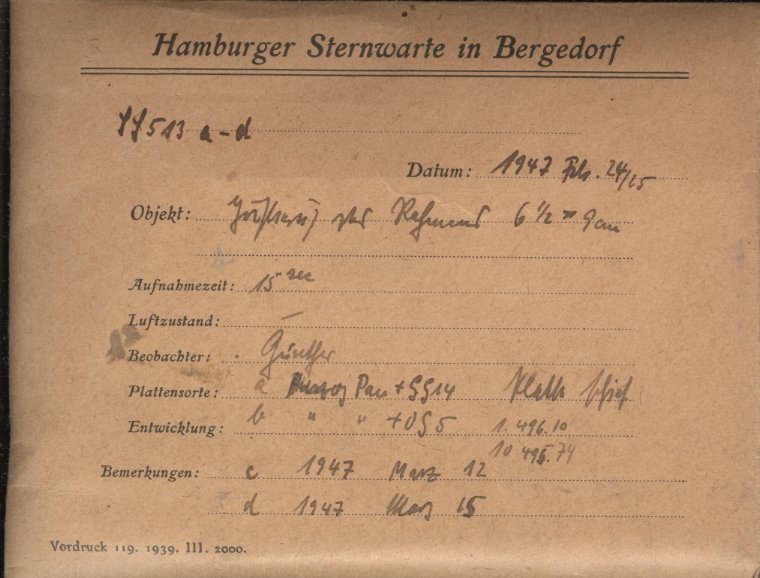 Hamburger Sternwarte in Bergedorf
513 a-d
Datum: 1947 Feb. 24/25
Objekt: 6 1/2
Aufnahmezeit: 15 sec
Luftzustand: —
Beobachter: Günther
Plattensorte: a Pan + GG14 Platte schief
Entwicklung: b " " + OG5 1. 496.10
10 495.74
Bemerkungen: c 1947 März 12
d 1947 März 15
Vordruck 119. 1939. III. 2000.